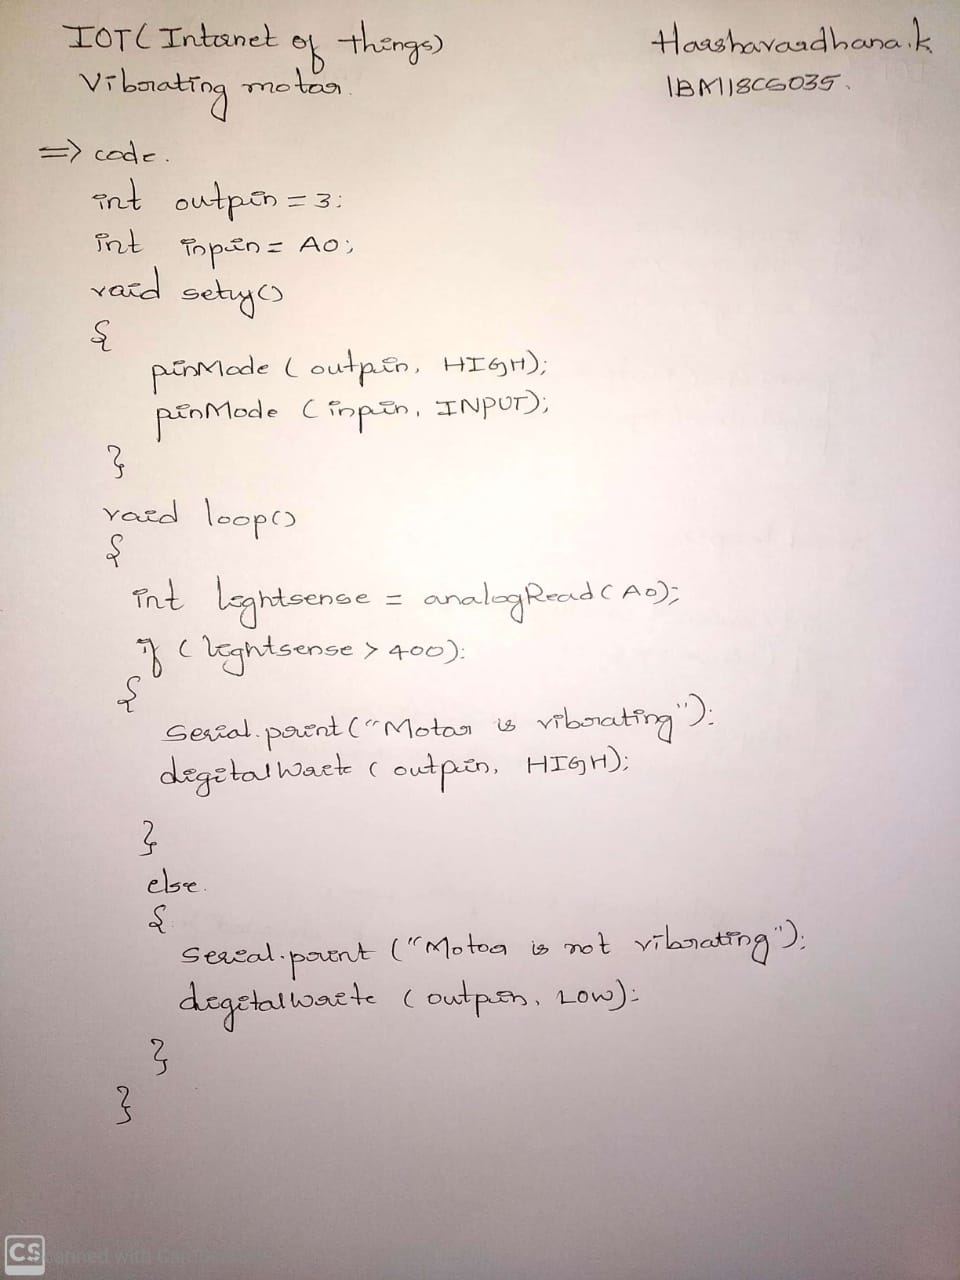 IOT (Internet of things)
Harshavardhana.k
Vibrating motor.
1BM18CS035.
=> code.
int outpin = 3;
int inpin = A0;
void setup()
{
pinMode (outpin, HIGH);
pinMode (inpin, INPUT);
}
void loop()
{
int lightsense = analogRead(A0);
if (lightsense > 400);
{
Serial.print("Motor is vibrating");
digitalWrite (outpin, HIGH);
}
else
{
Serial.print ("Motor is not vibrating");
digitalWrite (outpin, LOW);
}
}
CS